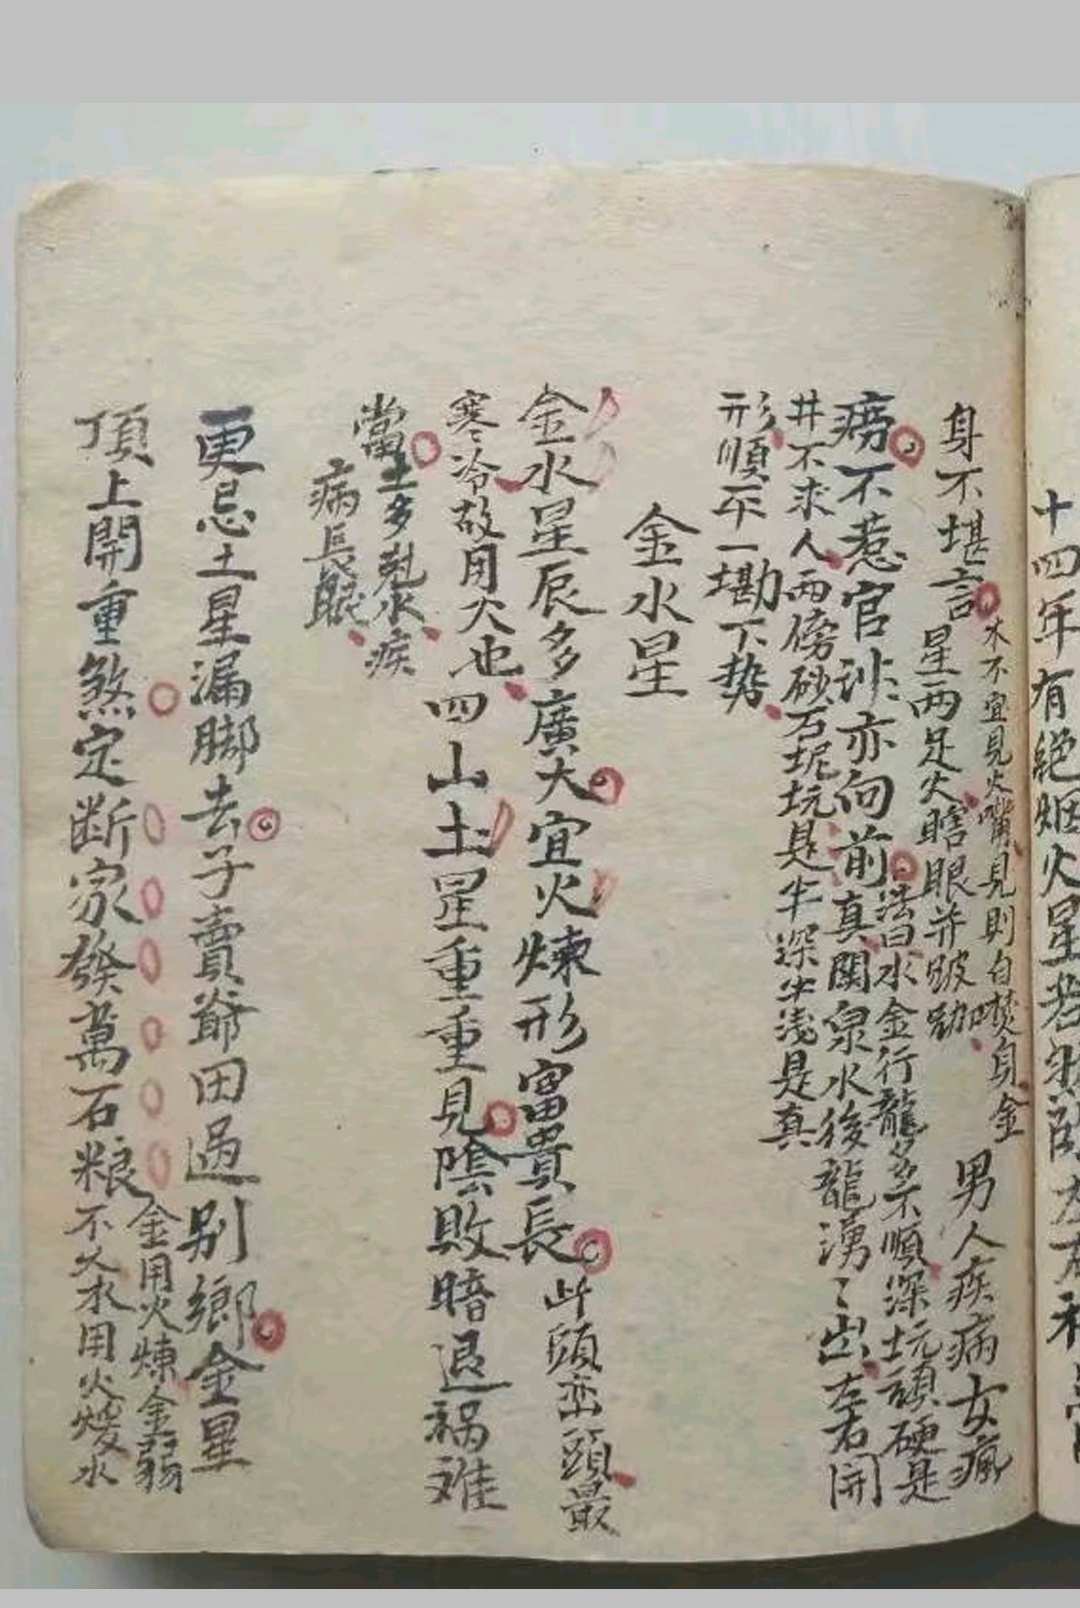 十四年有絕烟火星若
身不堪言
木不宜見火嘴見則自焚身金
星兩足火瞎眼并跛
男人疾病女瘋
痨不惹官訟亦向前
法曰水金行龍多不順深坑頑硬是
真關泉水後龍湧々出左右開
井不求人兩傍砂石坭坑是半深半淺是真
形順一平一勘下势
金水星
金水星辰多廣大宜火煉形富貴長
此頭巒頭最
寒冷故用火也
四山土星重重見陰敗暗退禍难
當
土多剋水疾
病長眠
更忌土星漏脚去子賣爺田過别鄉金星
頂上開重煞定斷家發萬石粮
金用火煉金弱
不久水用火煖水